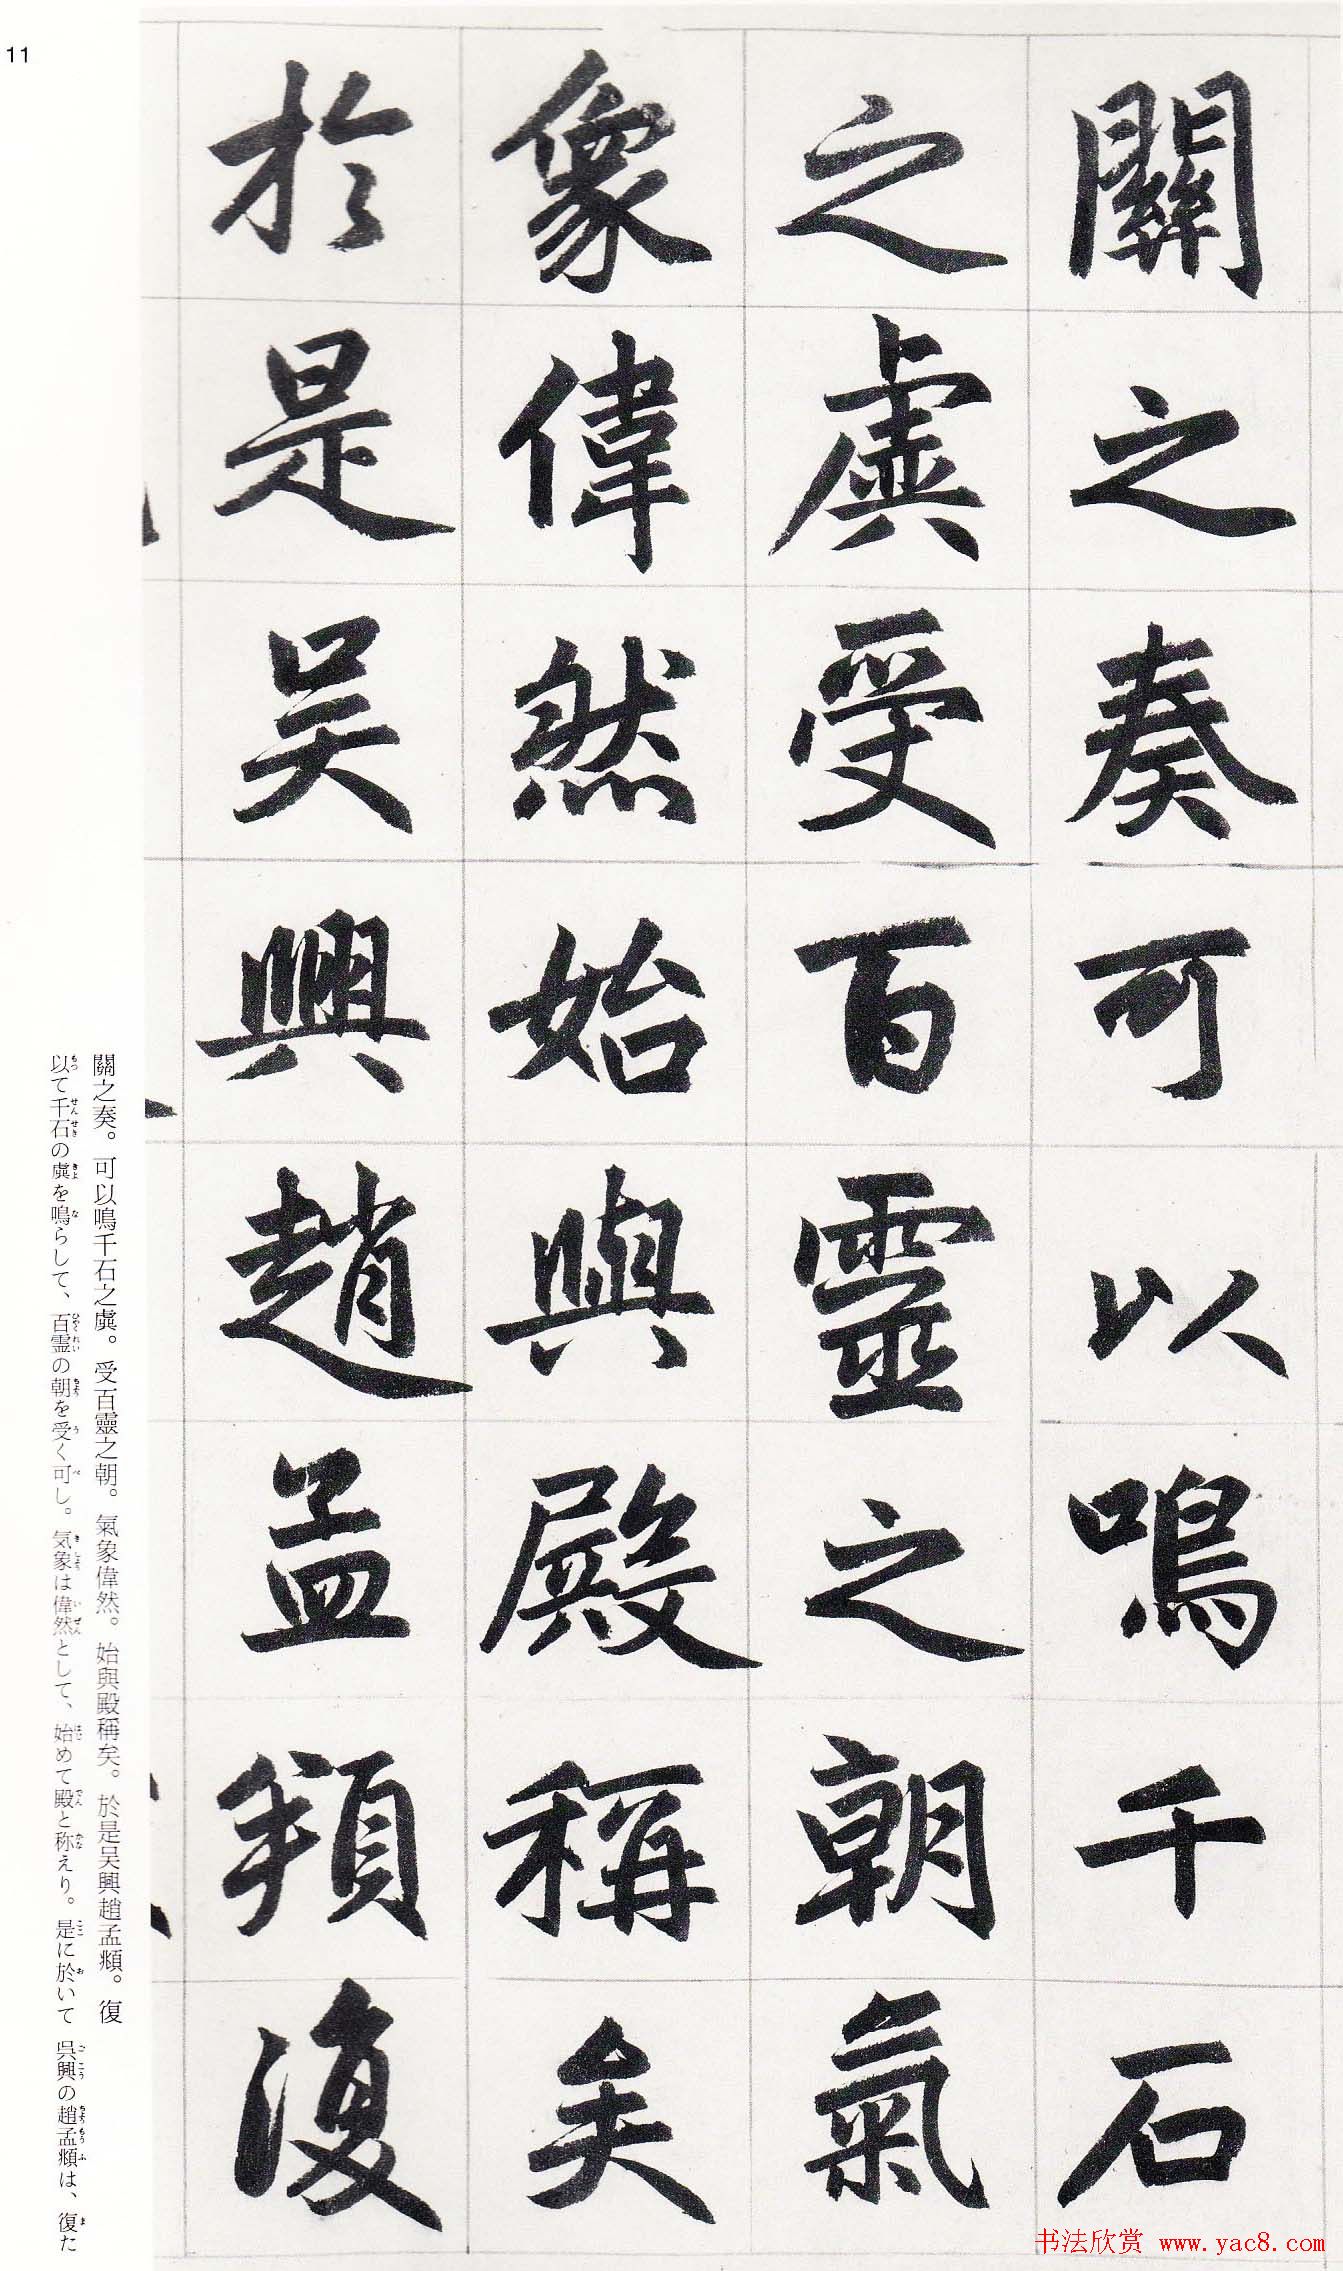 關之奏可以鳴千石
之虡受百靈之朝氣
象偉然始與殿稱矣
於是吴興趙孟頫復
關之奏。可以鳴千石之虡。受百靈之朝。氣象偉然。始與殿稱矣。於是吴興趙孟頫。復
以て千石の虡を鳴らして、百霊の朝を受く可し。気象は偉然として、始めて殿と称えり。是に於いて呉興の趙孟頫は、復た
11
书法欣赏 www.yac8.com